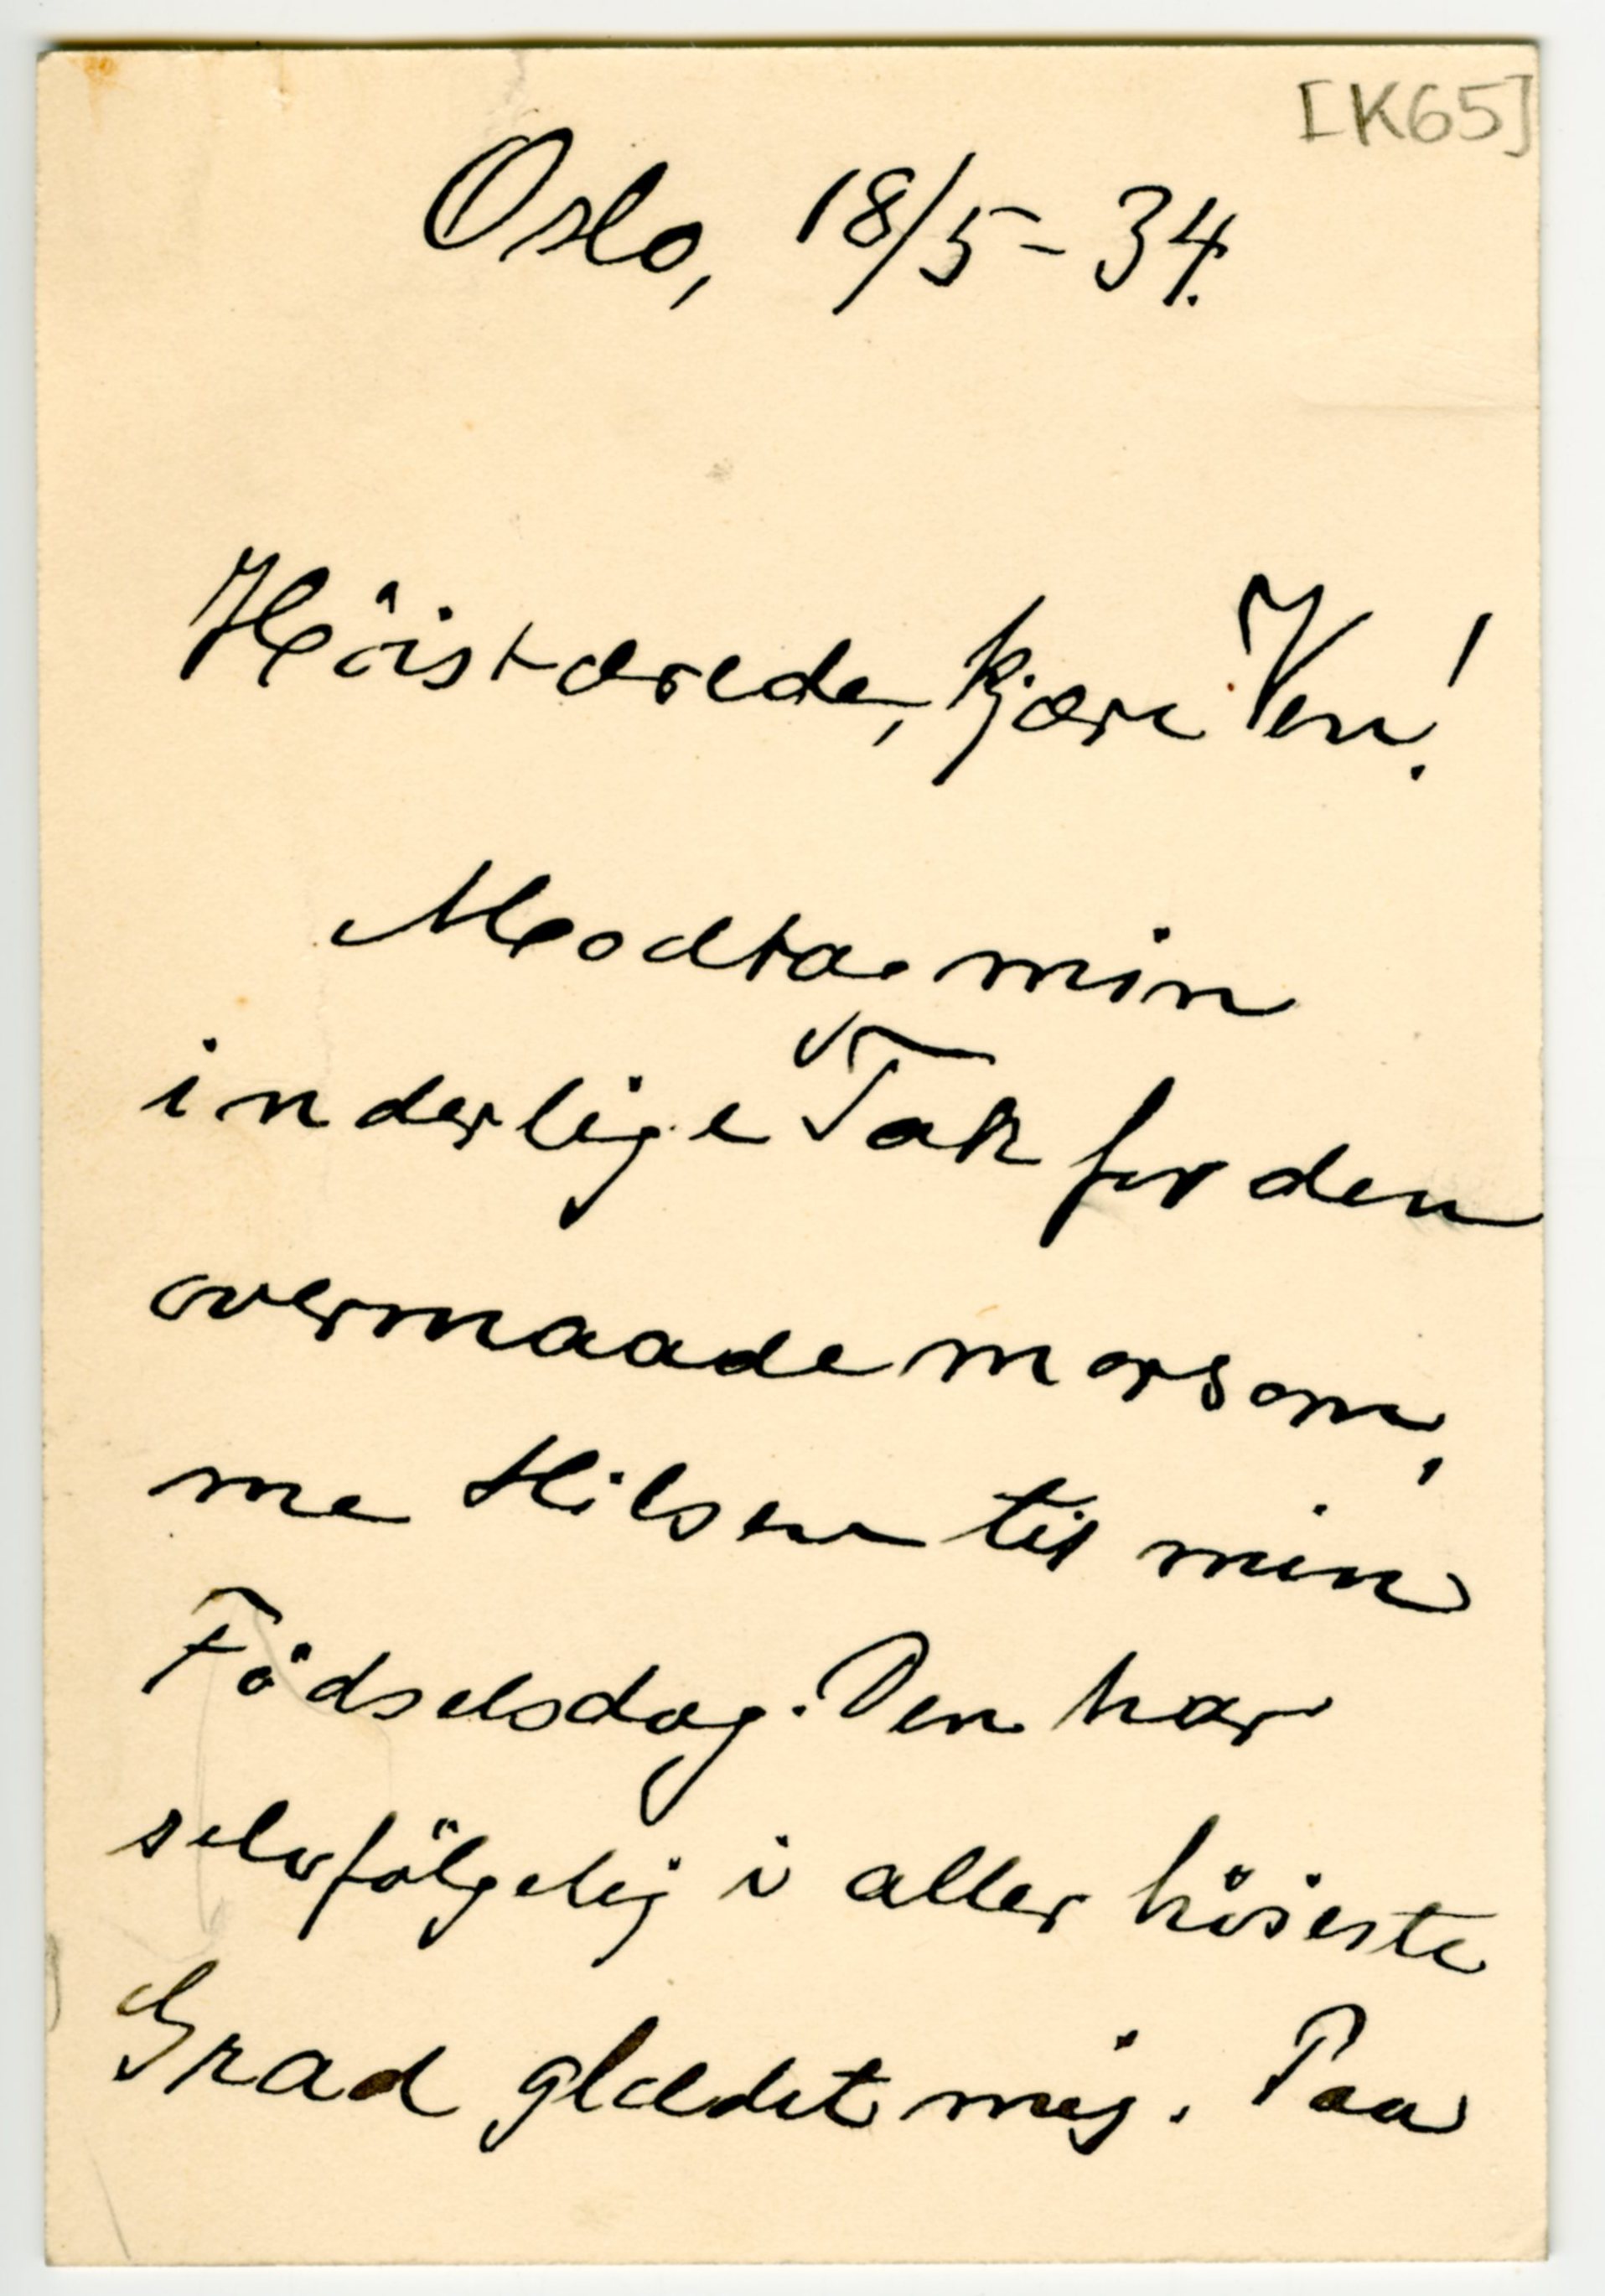 [K65]
Oslo, 18/5-34.
Höistærede, kjære Ven!
Modta min
inderlige Tak for den
overmaade morsom,
me Hilsen til min
Födselsdag. Den har
selvfölgelig i aller höieste
Grad glædet mig. Paa